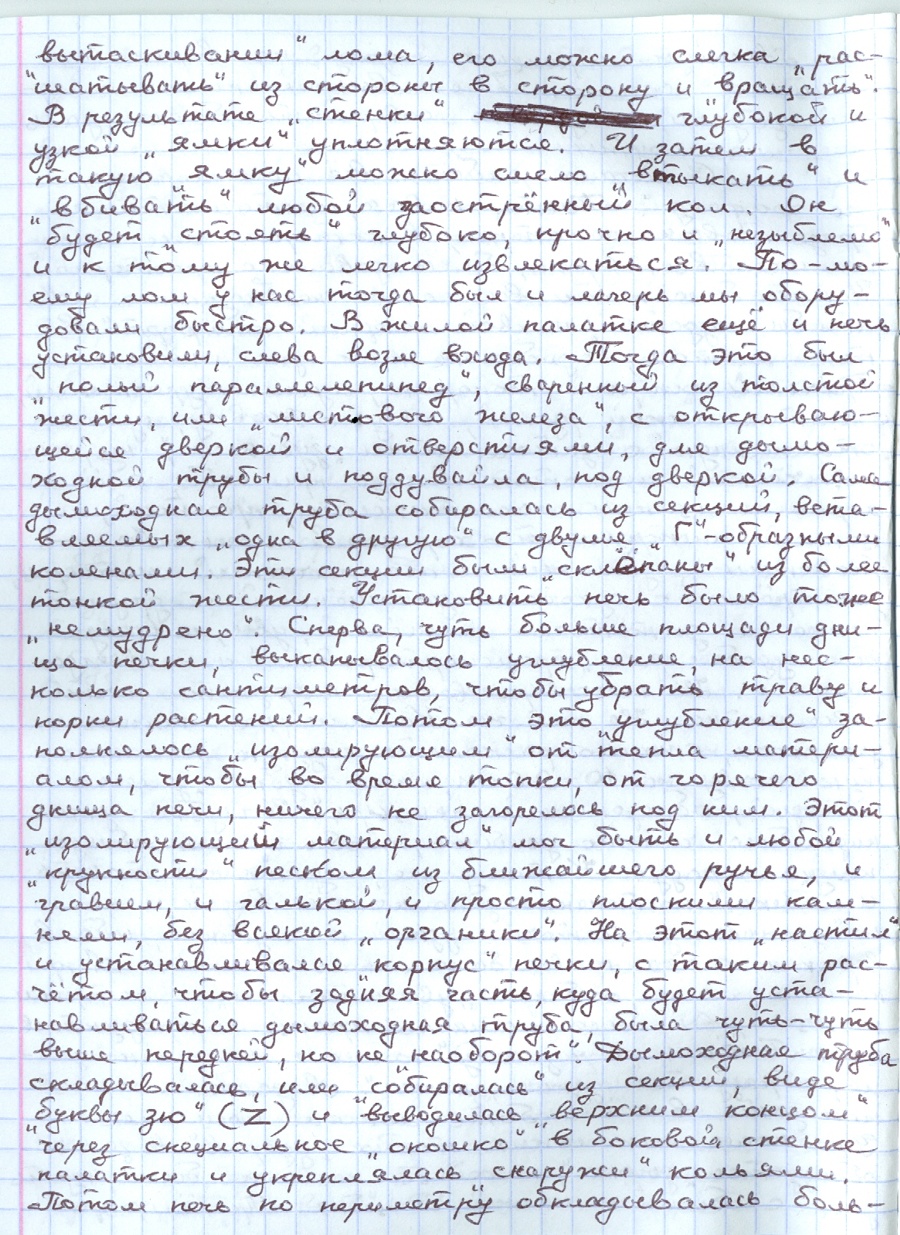 вытаскивании" лома, его можно слегка „рас-
шатывать" из стороны в сторону и „вращать".
В результате „стенки" глубокой и
узкой „ямки" уплотняются. И затем в
такую „ямку" можно смело „втыкать" и
„вбивать" любой заострённый кол. Он
будет „стоять" глубоко, прочно и „незыблемо"
и к тому же легко извлекаться. По-мо-
ему лом у нас тогда был и лагерь мы обору-
довали быстро. В жилой палатке ещё и печь
установили, слева возле входа. Тогда это был
„полый параллелепипед", сваренный из толстой
жести, или „листового железа", с открываю-
щейся дверкой и отверстиями, для дымо-
ходной трубы и поддувайла, под дверкой. Сама
дымоходная труба собиралась из секций, вста-
вляемых „одна в другую" с двумя „Г"-образными
коленами. Эти секции были „склёпаны" из более
тонкой жести. Установить печь было тоже
„немудрено". Сперва, чуть больше площади дни-
ща печки, выкапывалось углубление, на нес-
колько сантиметров, чтобы убрать траву и
корни растений. Потом это „углубление" за-
полнялось „изолирующим" от тепла матери-
алом, чтобы во время топки, от горячего
днища печи, ничего не загорелось под ним. Этот
„изолирующий материал" мог быть и любой
„крупности" песком из ближайшего ручья, и
гравием, и галькой, и просто плоскими кам-
нями, без всякой „органики". На этот „настил"
и устанавливался „корпус" печки, с таким рас-
чётом, чтобы задняя часть, куда будет уста-
навливаться дымоходная труба, была чуть-чуть
выше передней, но не „наоборот". Дымоходная труба
складывалась, или „собиралась" из секций, виде
„буквы зю" (Z) и „выводилась" „верхним концом"
через специальное „окошко" в боковой стенке
палатки и укреплялась „снаружи" кольями.
Потом печь по периметру обкладывалась боль-